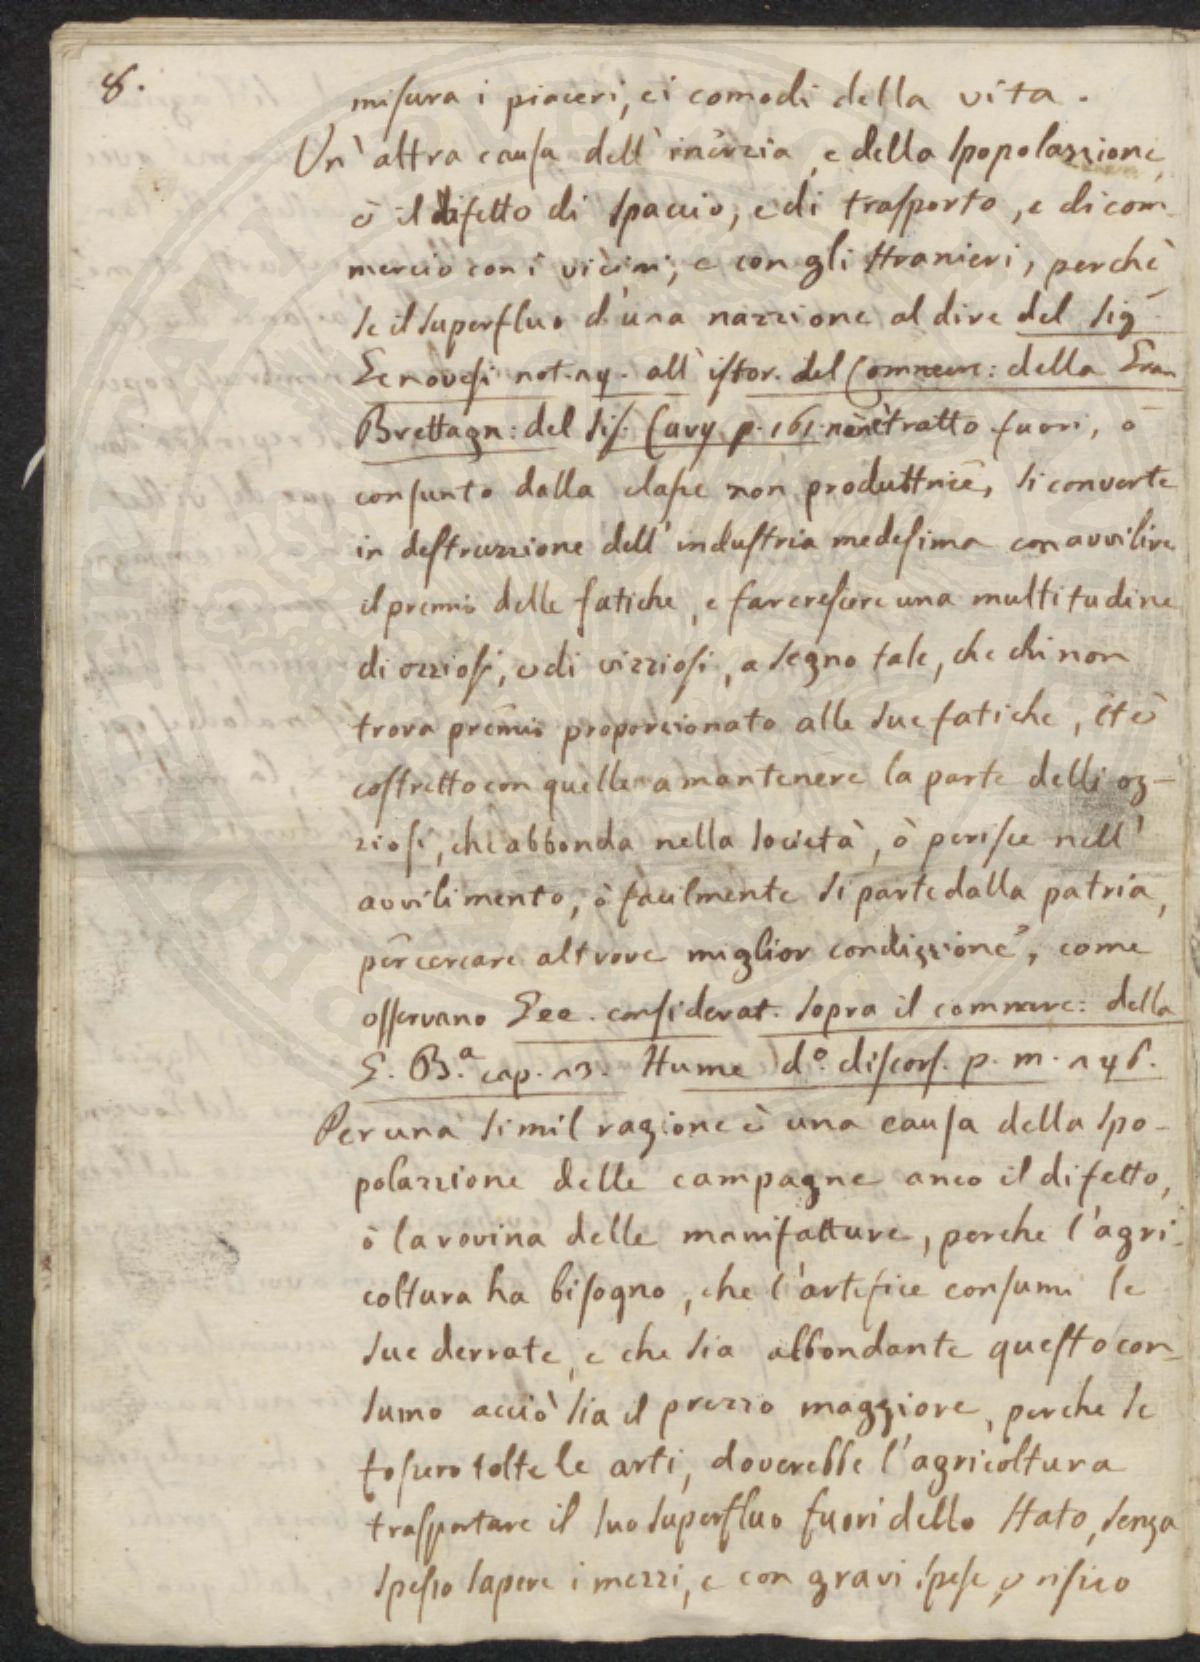 8.
misura i piaceri, ei comodi della vita.
Un'altra causa dell'inerzia, e della spopolazzione,
è il difetto di spaccio, e di trasporto, e di com-
mercio con i vicini, e con gli stranieri, perchè
se il superfluo d'una nazzione al dire del Sig.
Genovesi not. 14. all'istor. del Commerc: della Gran
Brettagn: del Sig. Cary p. 161. non è tratto fuori, ò
consunto dalla classe non produttrice, si converte
in destruzzione dell'industria medesima con avvilire
il premio delle fatiche, e far crescere una moltitudine
di ozziosi, e di vizziosi, a segno tale, che chi non
trova premio proporzionato alle sue fatiche, et è
costretto con quelle a mantenere la parte delli oz-
ziosi, che abbonda nella società, ò perisce nell'
avvilimento, ò facilmente si parte dalla patria,
per cercare altrove miglior condizzione, come
osservano Gee. considerat. sopra il commerc: della
G. B.a cap. 13. Hume d.o discors. p. m. 146.
Per una simil ragione è una causa della spo-
polazzione delle campagne anco il difetto,
ò la rovina delle manifatture, perche l'agri-
coltura ha bisogno, che l'artefice consumi le
sue derrate, e che sia abbondante questo con-
sumo acciò sia il prezzo maggiore, perche se
fossero tolte le arti, doverebbe l'agricoltura
trasportare il suo superfluo fuori dello Stato, senza
spesso sapere i mezzi, e con gravi spese, e risico